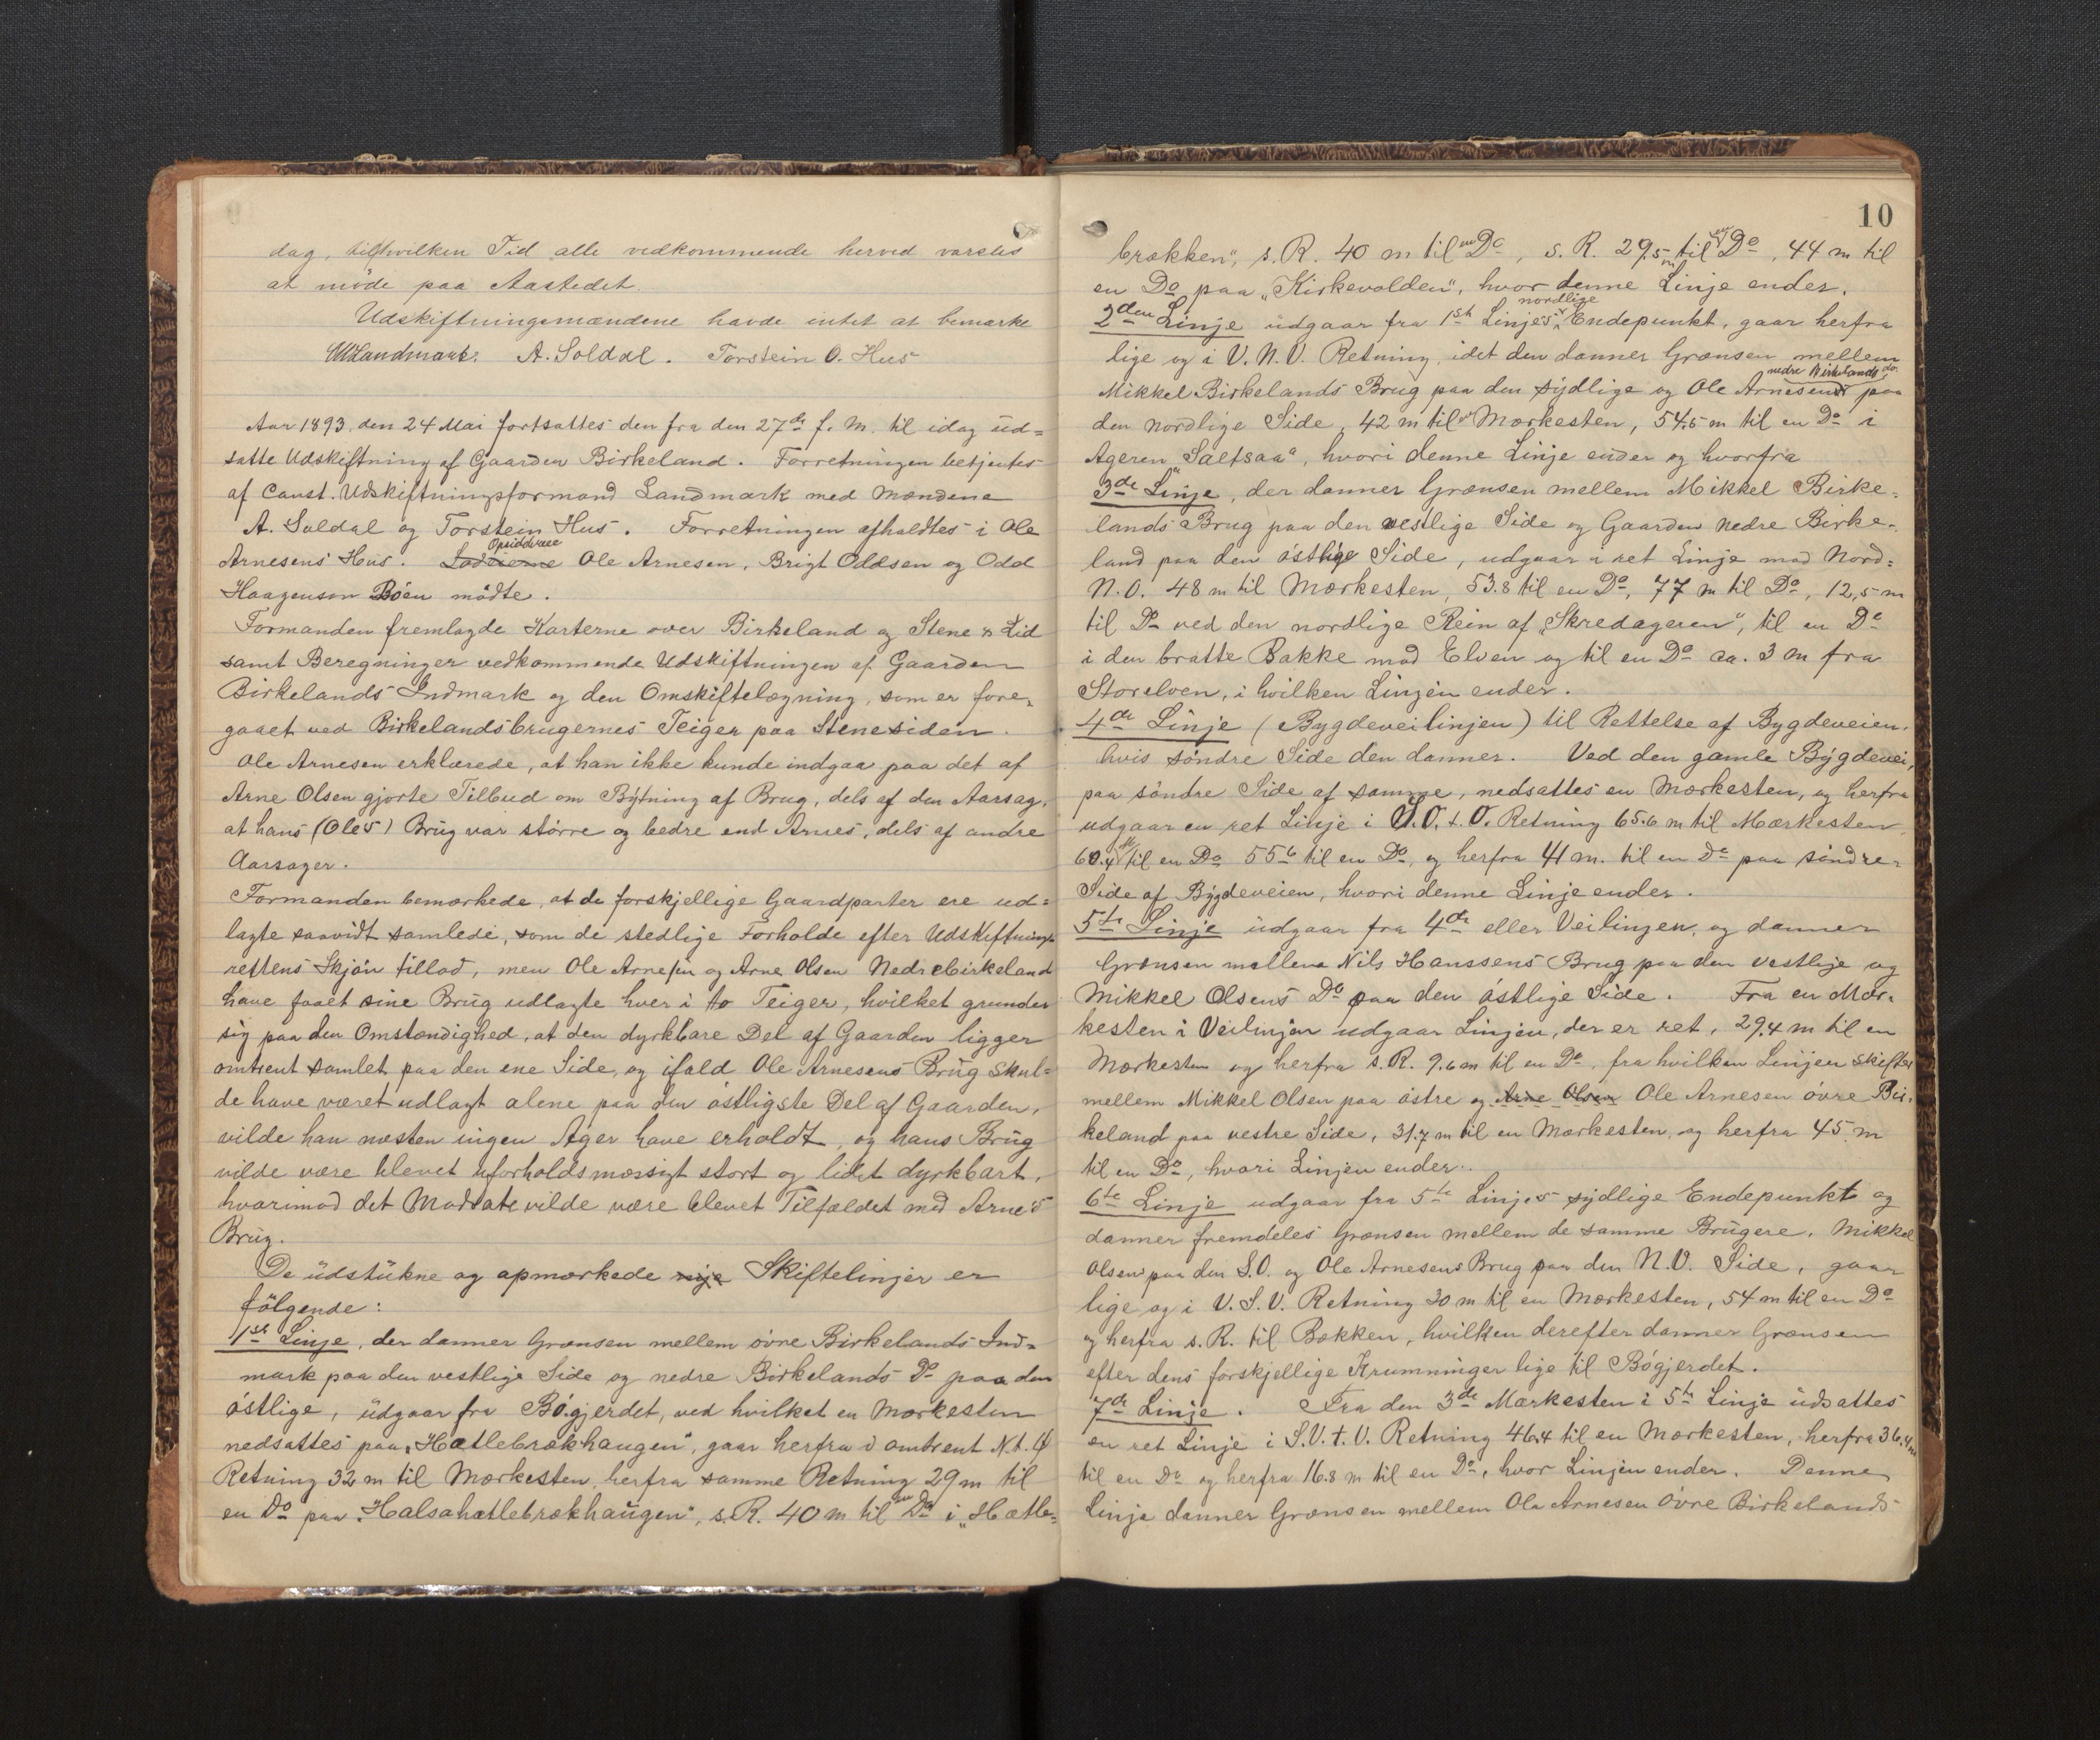 dag, til hvilken Tid alle vedkommende herved varsles
at møde paa Aastedet.
Udskiftningsmændene havde intet at bemærke
Landmark. A. Soldal. Torstein O. Hus
Aar 1893, den 24 Mai fortsattes den fra den 27de f. M. til idag ud=
satte Udskiftning af Gaarden Birkeland. Forretningen betjentes
af Const. Udskiftningsformand Landmark med Mændene
A. Soldal og Torstein Hus. Forretningen afholdtes i Ole
Arnesens Hus. Opsidderne Ole Arnesen, Brigt Oddsen og Odd
Haagenson Böen mødte.
Formanden fremlagde Karterne over Birkeland og Stene & Lid
samt Beregninger vedkommende Udskiftningen af Gaarden
Birkelands Indmark og den Omskiftelægning, som er fore-
gaaet ved Birkelandsbrugernes Teiger paa Stenesiden.
Ole Arnesen erklærede, at han ikke kunde indgaa paa det af
Arne Olsen gjorte Tilbud om Bytning af Brug, dels af den Aarsag,
at hans (Oles) Brug var større og bedre end Arnes, dels af andre
Aarsager.
Formanden bemærkede, at de forskjellige Gaardparter ere ud=
lagte saavidt samlede, som de stedlige Forholde efter Udskiftnings
rettens Skjøn tillod, men Ole Arnesen og Arne Olsen Nedrebirkeland
have faaet sine Brug udlagte hver i to Teiger, hvilket grunder
sig paa den Omstændighed, at den dyrkbare Del af Gaarden ligger
omtrent samlet paa den ene Side, og ifald Ole Arnesens Brug skul=
de have været udlagt alene paa den østligste Del af Gaarden,
vilde han næsten ingen Ager have erholdt, og hans Brug
vilde være blevet uforholdsmæssigt stort og lidet dyrkbart,
hvorimod det Modsate vilde være blevet Tilfældet med Arne's
Brug.
De udstukne og opmærkede nye Skiftelinjer er
følgende:
1ste Linje, der danner Grænsen mellem øvre Birkelands Ind=
mark paa den vestlige Side og nedre Birkelands Do paa den
østlige, udgaar fra Bøgjerdet, ved hvilket en Mærkesten
nedsattes paa „Hætlebrækhaugen", gaar herfra i omtrent N.t.Ø
Retning 32 m til Mærkesten, herfra samme Retning 29 m til
en Do paa „Halsahætlebrækhaugen", s. R. 40 m til en Do i „Hætle=
10
brækken", s. R. 40 m til en Do, s. R. 29,5 m til en Do, 44 m til
en Do paa „Kirkevolden", hvor denne Linje ender.
2den Linje udgaar fra 1ste Linjes nordlige Endepunkt, gaar herfra
lige og i V.N.V. Retning, idet den danner Grænsen mellem
Mikkel Birkelands Brug paa den sydlige og Ole Arnesens nedre Birkelands do. paa
den nordlige Side, 42 m til en Mærkesten, 54,5 m til en Do i
Ageren „Saltsaa", hvori denne Linje ender og hvorfra
3de Linje, der danner Grænsen mellem Mikkel Birke=
lands Brug paa den vestlige Side og Gaarden nedre Birke=
land paa den østlige Side, udgaar i ret Linje mod Nord=
N.O. 48 m til Mærkesten, 53.8 til en Do, 77 m til Do, 12,5 m
til Do ved den nordlige Rein af „Skredageren", til en Do
i den bratte Bakke mod Elven og til en Do ca. 3 m fra
Storelven, i hvilken Linjen ender.
4de Linje (Bygdeveilinjen) til Rettelse af Bygdeveien,
hvis søndre Side den danner. Ved den gamle Bygdevei,
paa søndre Side af samme, nedsattes en Mærkesten, og herfra
udgaar en ret Linje i S.O.t.O. Retning 65.6 m til Mærkesten,
60.4 M til en Do 55.6 til en Do, og herfra 41 m. til en do paa søndre=
Side af Bygdeveien, hvori denne Linje ender.
5te Linje udgaar fra 4de eller Veilinjen, og danner
Grænsen mellem Nils Hanssens Brug paa den vestlige og
Mikkel Olsens Do paa den østlige Side. Fra en Mær=
kesten i Veilinjen udgaar Linjen, der er ret, 29.4 m til en
Mærkesten og herfra s. R. 9.6 m til en Do, fra hvilken Linjen skifter
mellem Mikkel Olsen paa østre og Arne Olsen Ole Arnesen øvre Bir=
keland paa vestre Side, 31.7 m til en Mærkesten, og herfra 45 m
til en Do, hvori Linjen ender.
6te Linje udgaar fra 5te Linjes sydlige Endepunkt og
danner fremdeles Grænsen mellem de samme Brugere, Mikkel
Olsen paa den S.O. og Ole Arnesens Brug paa den N.V. Side, gaar
lige og i V.S.V. Retning 30 m til en Mærkesten, 54 m til en Do
og herfra s. R. til Bækken, hvilken derefter danner Grænsen
efter dens forskjellige Krumninger lige til Bøgjerdet.
7de Linje. Fra den 3de Mærkesten i 5te Linje udsattes
en ret Linje i S.V.t.V. Retning 46.4 til en Mærkesten, herfra 36.4 m
til en Do og herfra 16.8 m til en Do, hvor Linjen ender. Denne
Linje danner Grænsen mellem Ole Arnesen Øvre Birkelands